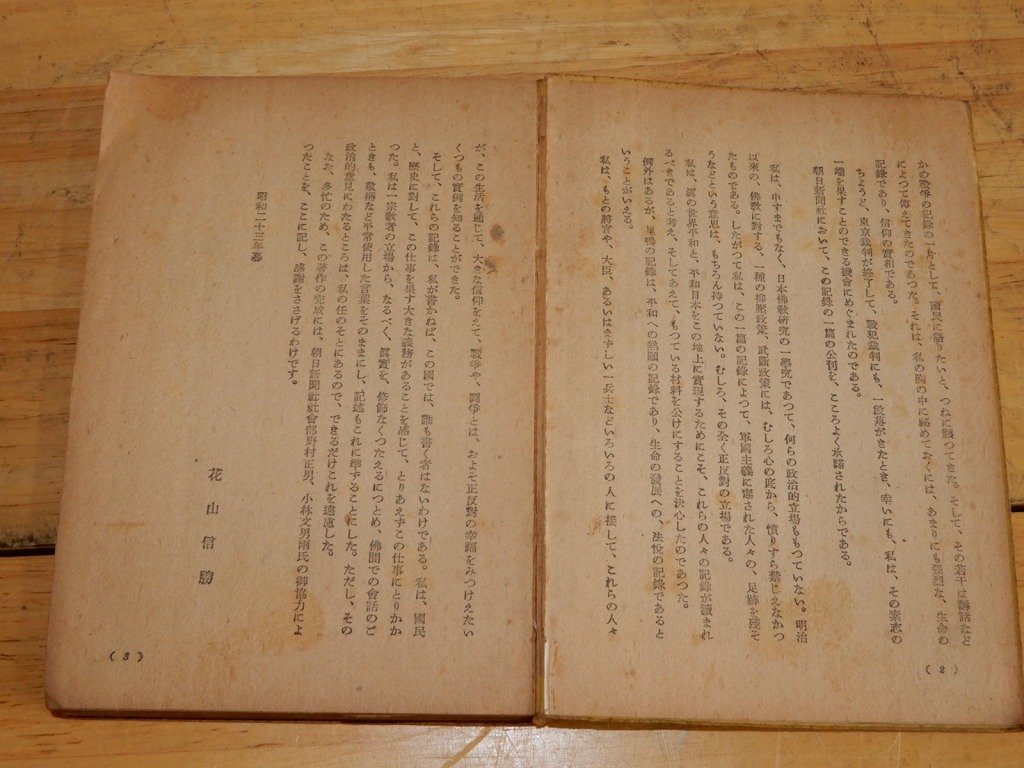 かの戰爭の記録の一片として、國民に語りたいと、つねに願つてきた。そして、その若干は講話など
によつて傳えてきたのであつた。それは、私の胸の中に秘めておくには、あまりにも强烈な、生命の
記録であり、信仰の實相である。
ちようど、東京裁判が終了して、戰犯裁判にも、一段落がきたとき、幸いにも、私は、その素志の
一端を果すことのできる機會にめぐまれたのである。
朝日新聞社において、この記録の一篇の公刊を、こころよく承諾されたからである。
私は、申すまでもなく、日本佛敎硏究の一學究であつて、何らの政治的立場ももつていない。明治
以來の、佛敎に對する、一種の抑壓政策、武斷政策には、むしろ心の底から、憤りすら禁じえなかつ
たものである。したがつて私は、この一篇の記録によつて、軍國主義に害された人々の、足跡を殘そ
うなどという意思は、もちろん持つていない。むしろ、その全く正反對の立場である。
私は、眞の世界平和と、平和日本をこの地上に實現するためにこそ、これらの人々の記録が讀まれ
るべきであると考え、そしてあえて、もつている材料を公けにすることを決心したのであつた。
例外はあるが、巢鴨の記録は、平和への熱願の記録であり、生命の發展への、法悅の記録であると
いうことがいえる。
私は、もとの將官や、大臣、あるいはまずしい一兵士などいろいろの人に接して、これらの人々
(2)
が、この生活を通じて、大きな信仰をえて、戰爭や、鬪爭とは、およそ正反對の幸福をみつけえたい
くつもの實例を知ることができた。
そして、これらの記録は、私が書かねば、この國では、誰も書く者はないわけである。私は、國民
と、歷史に對して、この仕事を果す大きな義務があることを感じて、とりあえずこの仕事にとりかか
つた。私は一宗敎者の立場から、なるべく、眞實を、修飾なくつたえるにつとめ、佛間での會話のご
ときも、敬稱など平常使用した言葉をそのままにし、記述もこれに準ずることにした。ただし、その
政治的意見にわたるところは、私の任のそとにあるので、できるだけこれを遠慮した。
なお、多忙のため、この著作の完成には、朝日新聞社社會部野村正男、小林文男兩氏の御協力によ
つたことを、ここに記し、感謝をささげるわけです。
昭和二十三年暮
花山信勝
(3)